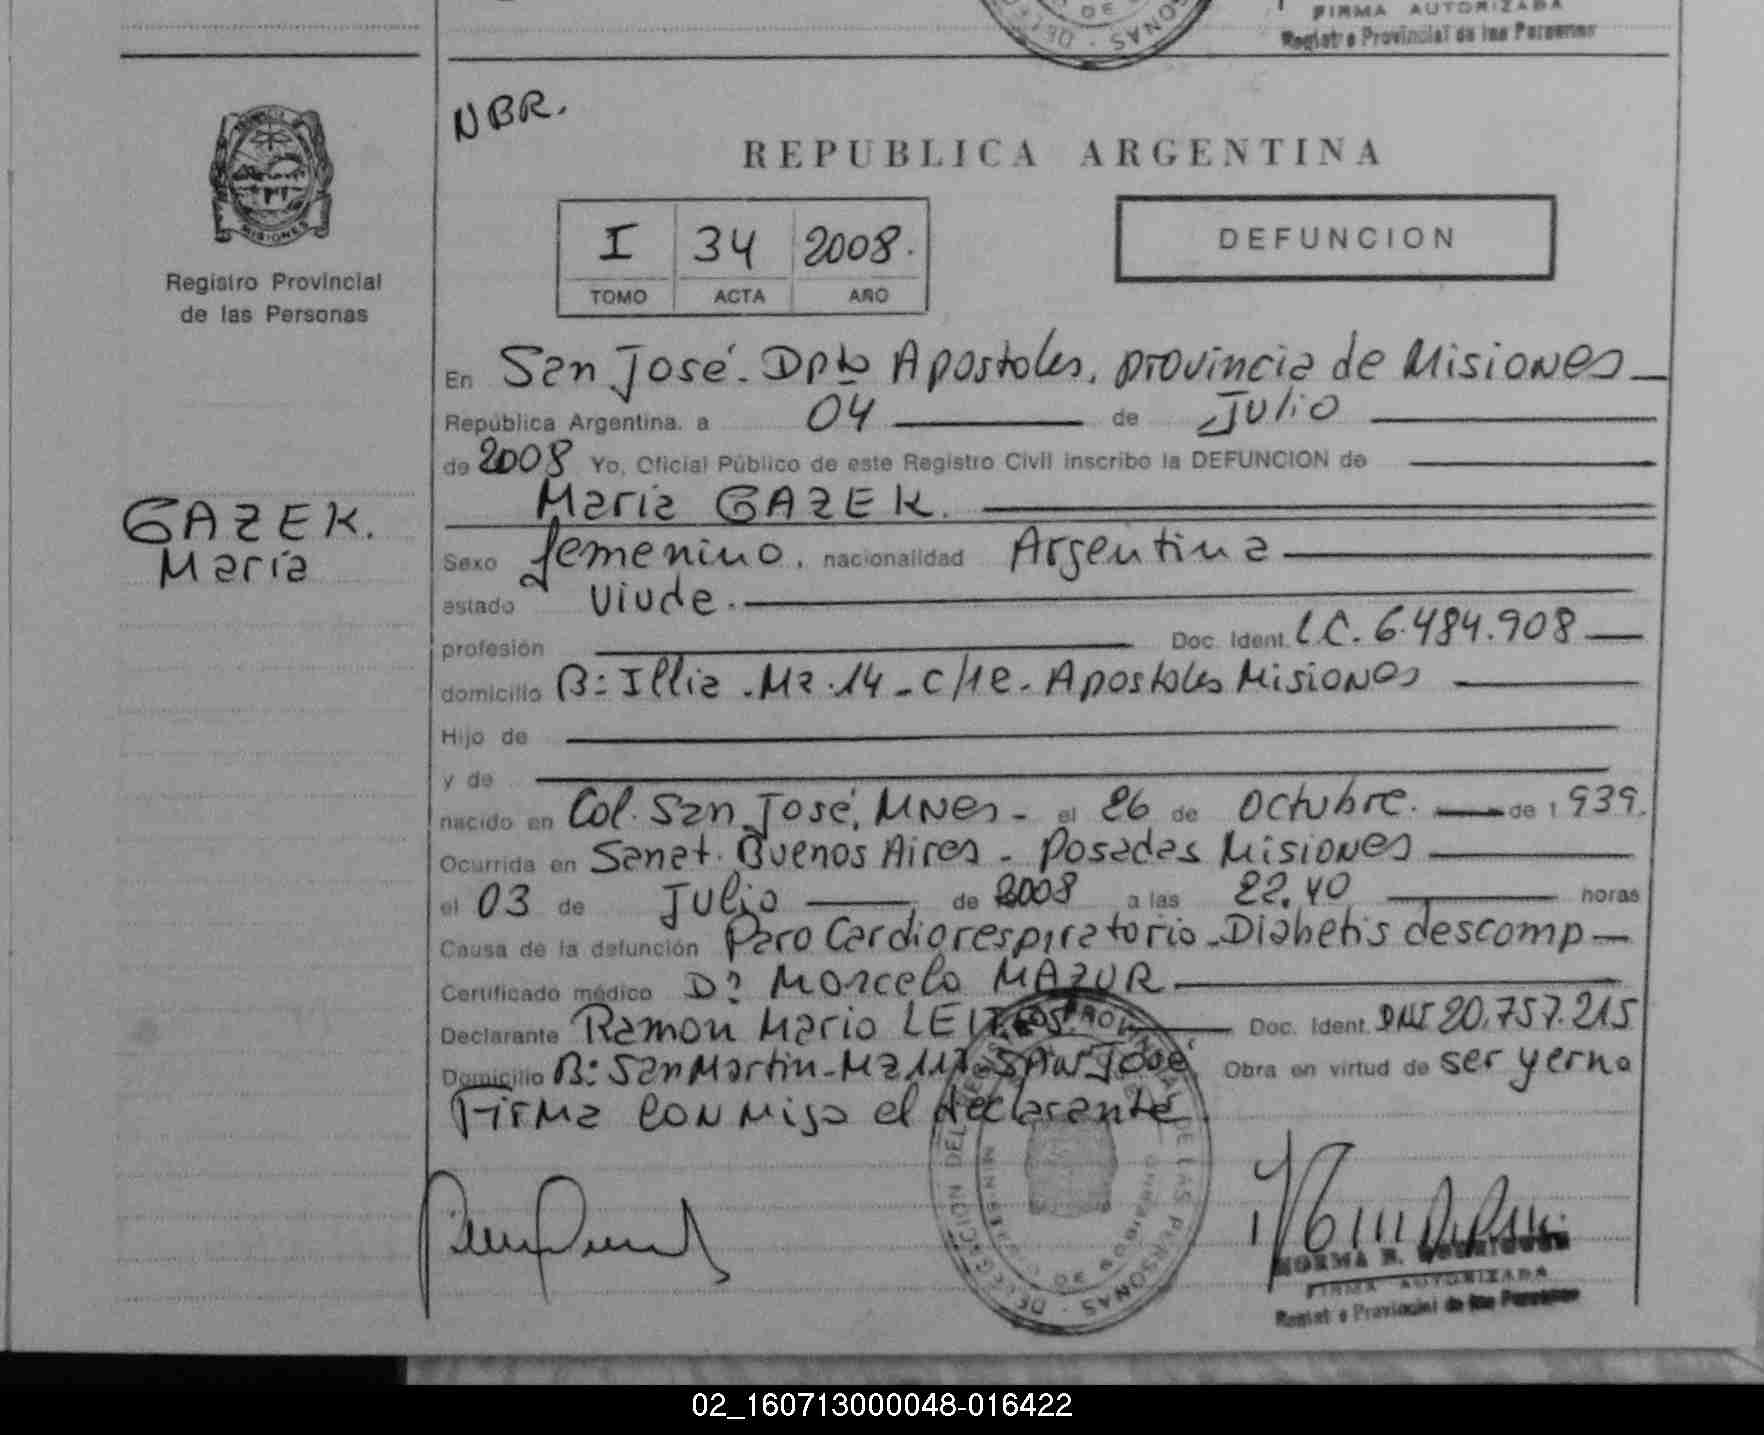 FIRMA AUTORIZADA
Registro Provincial de las Personas
NBR.
REPUBLICA ARGENTINA
I 34 2008.
TOMO ACTA AÑO
DEFUNCION
MISIONES
Registro Provincial
de las Personas
GAZEK.
María
En San José. Dpto Apostoles, provincia de Misiones
República Argentina, a 04 de Julio
de 2008 Yo, Oficial Público de este Registro Civil inscribo la DEFUNCION de
María GAZEK.
Sexo femenino. nacionalidad Argentina
estado Viuda.
profesión Doc. Ident. L.C. 6.484.908
domicilio B: Illia - Mz. 14 - c/12 - Apostoles Misiones
Hijo de
y de
nacido en Col. San José, Mnes - el 26 de Octubre. de 1 939.
Ocurrida en Sanat. Buenos Aires - Posadas Misiones
el 03 de Julio de 2008 a las 22.40 horas
Causa de la defunción Paro Cardiorespiratorio - Diabetis descomp
Certificado médico Dr Marcelo MAZUR
Declarante Ramon Mario Doc. Ident. DNI 20.757.215
Domicilio B: San Martin - Mz San José Obra en virtud de ser yerno
Firma conmigo el declarante
DELEGACION DEL REGISTRO PROVINCIAL DE LAS PERSONAS
NORMA B.
FIRMA AUTORIZADA
Registro Provincial de las Personas
02_160713000048-016422